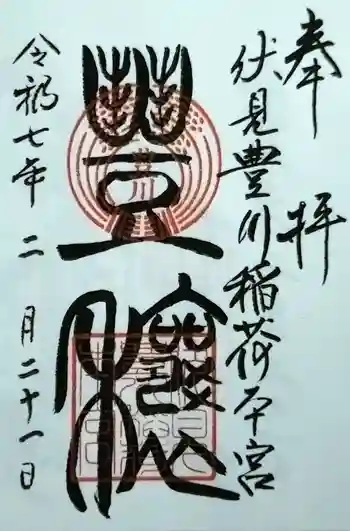 奉拝
伏見豊川稲荷本宮
豊穣
令和七年 二 月二十一日